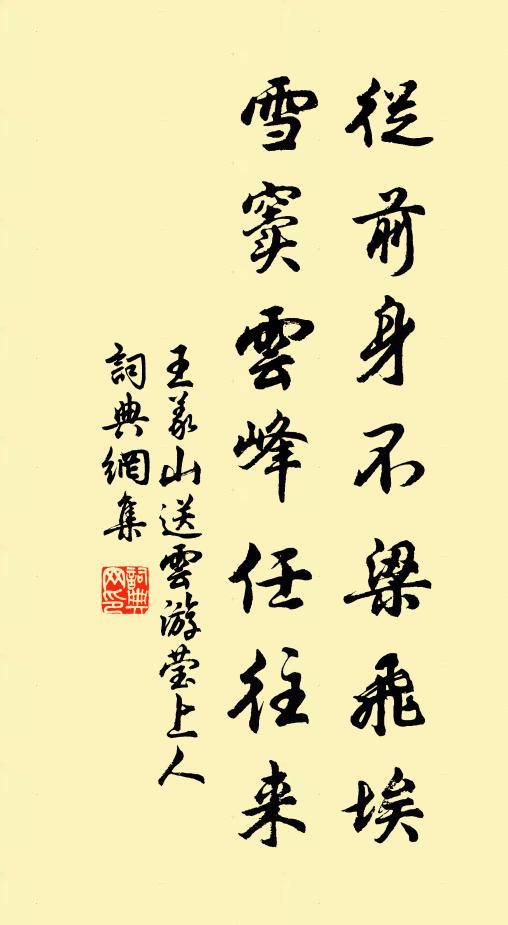 從前身不梁飛埃
雪窦雲峰任往来
王義山送雲游莹上人
詞典網集
詞典网印